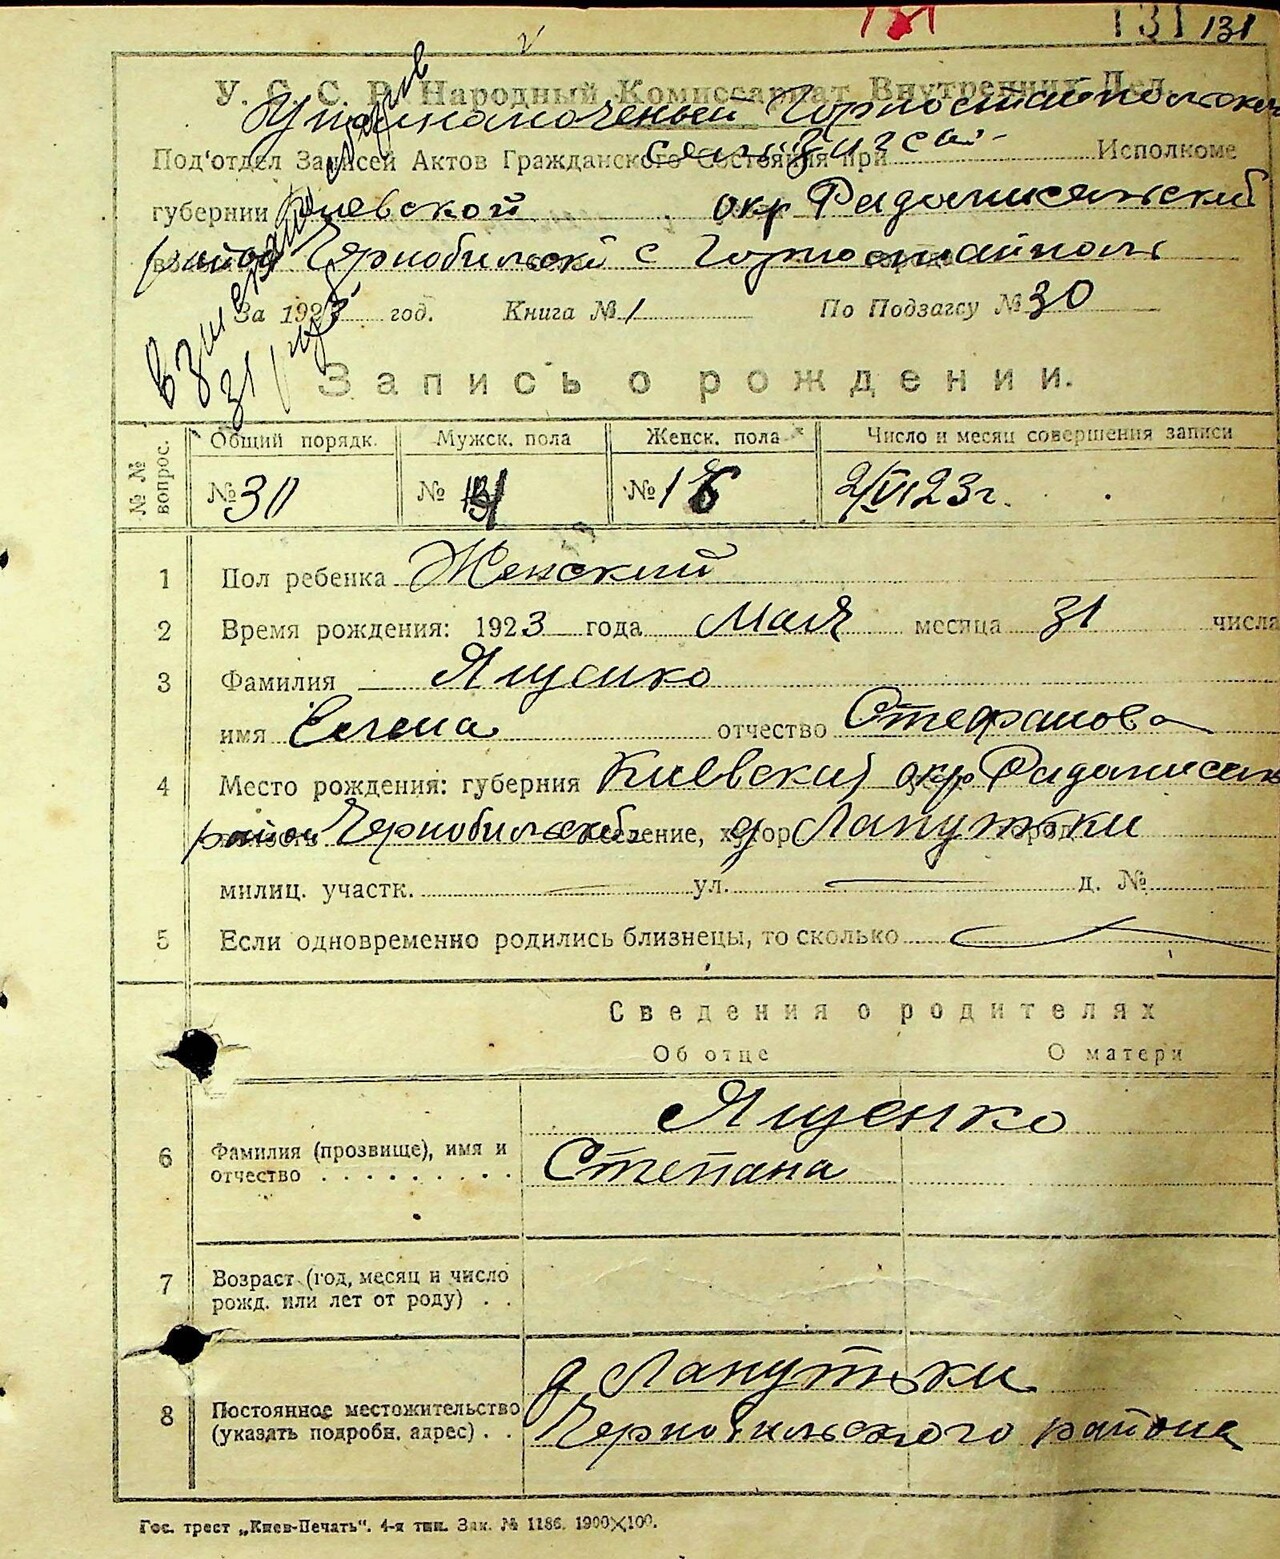 131 131 131
У. С. С. Р. Народный Комиссариат Внутренних Дел.
Уполномоченый Горностайпольском
Под'отдел Записей Актов Гражданского Состояния при Исполкоме
губернии Киевской окр Радомисельский
район Чернобильскі с Горностайполь
За 1923 год. Книга № 1 По Подзагсу № 30
31
Запись о рождении.
№№ вопрос. Общий порядк. Мужск. пола Женск. пола Число и месяц совершения записи
№ 30 № № 16 2/VI 23 г.
1 Пол ребенка Женский
2 Время рождения: 1923 года Мая месяца 31 числа
3 Фамилия Ященко
имя Елена отчество Стефанова
4 Место рождения: губерния Киевский окр Радомисель
район Чернобильскій селение, хутор д Лапутьки
милиц. участк. ул. д. №
5 Если одновременно родились близнецы, то сколько
Сведения о родителях
Об отце О матери
Ященко
6 Фамилия (прозвище), имя и Степана
отчество
7 Возраст (год, месяц и число
рожд. или лет от роду)
д Лапутьки
8 Постоянное местожительство Чернобильского района
(указать подробн. адрес)
Гос. трест „Киев-Печать“. 4-я тип. Зак. № 1186. 1900×100.